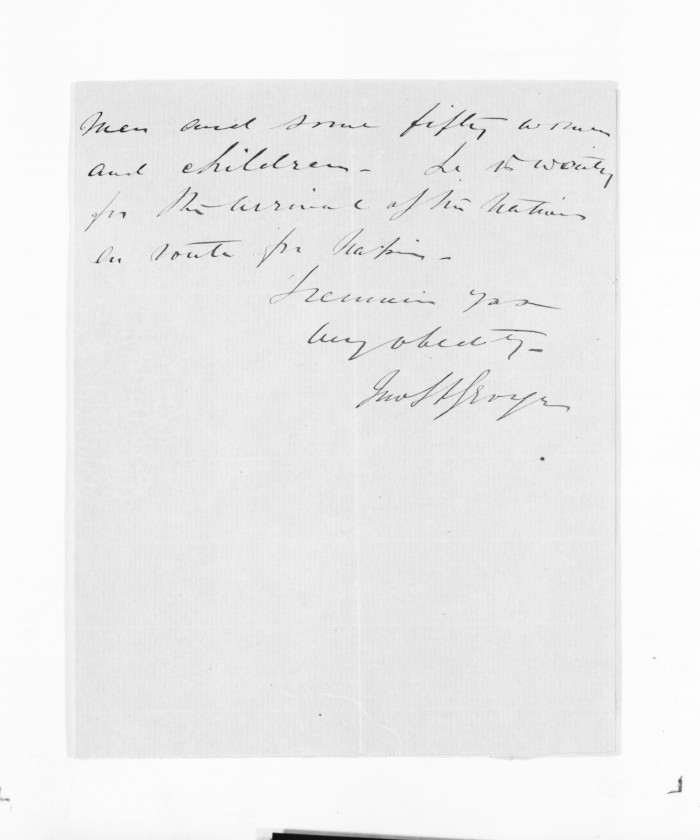 men and some fifty women
and children - is waiting
for the arrival of the Natives
en route for Napier -
I remain yrs
very obedtly -
Jno St George